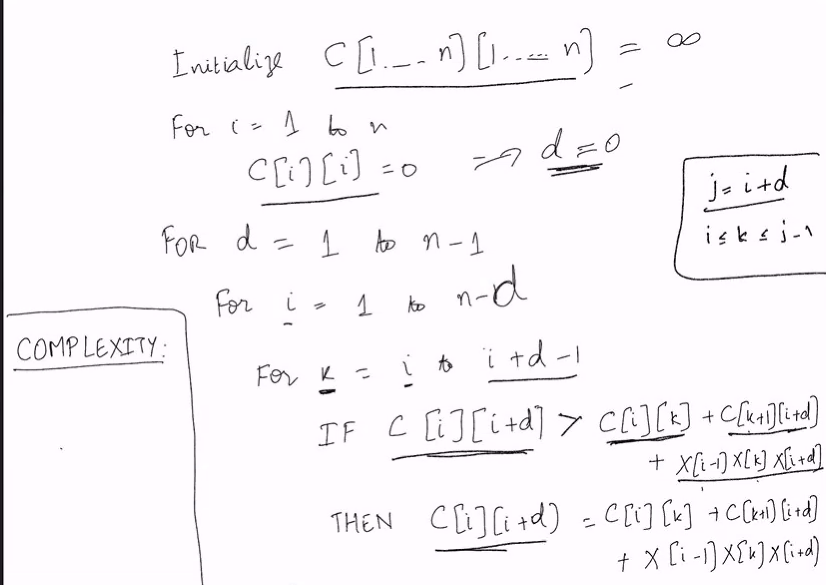 Initialize C[1...n][1....n] = ∞
For i = 1 to n
C[i][i] = 0 => d = 0
j = i+d
i ≤ k ≤ j-1
FOR d = 1 to n-1
For i = 1 to n-d
COMPLEXITY:
For k = i to i+d-1
IF C[i][i+d] > C[i][k] + C[k+1][i+d]
+ X[i-1] X[k] X[i+d]
THEN C[i][i+d) = C[i][k] + C[k+1)[i+d]
+ X[i-1] X[k] X[i+d)